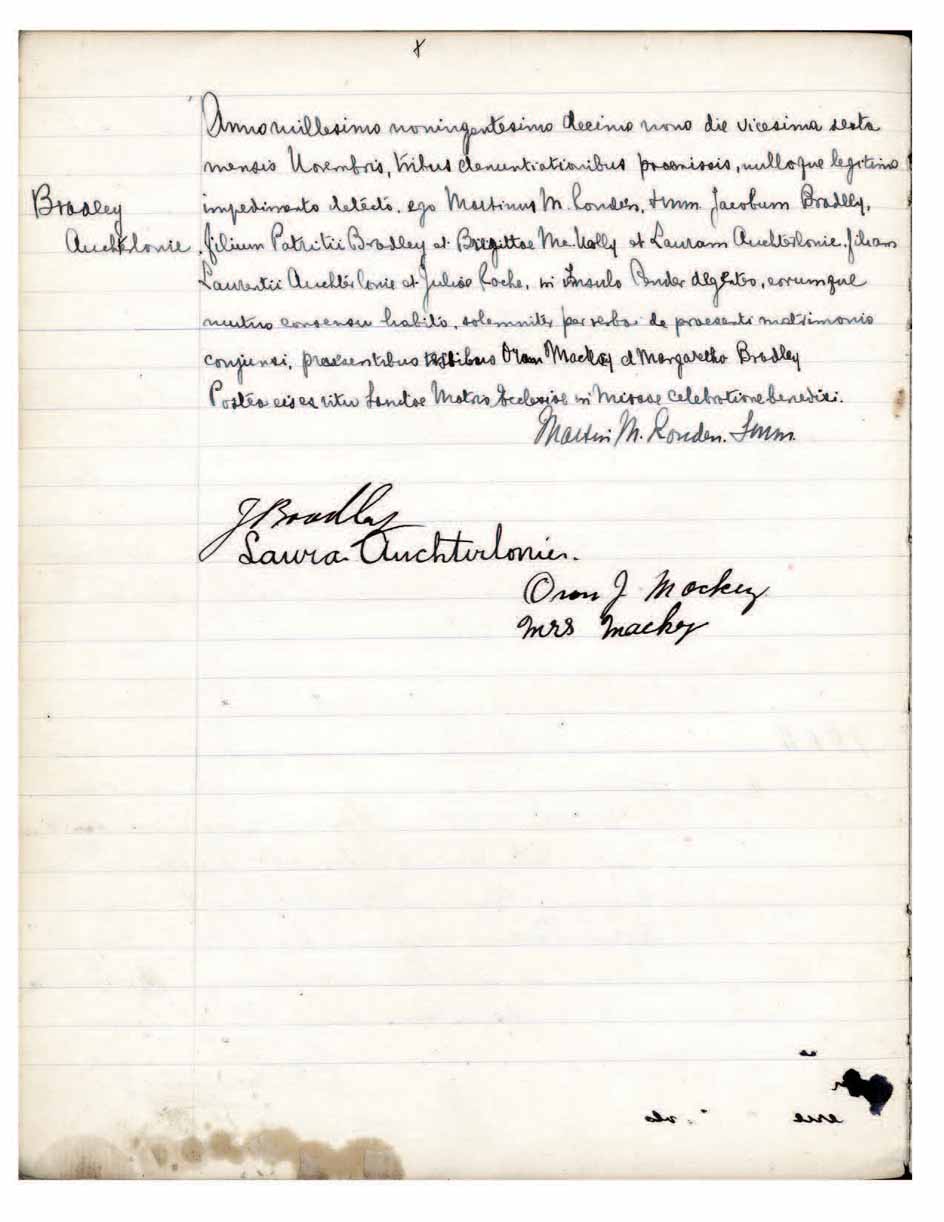 x
Anno millesimo noningentesimo decimo nono die vicesima sexta
mensis Novembris, tribus denuntiationibus praemissis, nulloque legitimo
Bradley
impedimento detecto, ego Martinus M. Ronden, smm. Jacobum Bradley,
Auchtelonie
filium Patritii Bradley et Brigittae Mc.Nally et Lauram Auchterlonie, filiam
Laurentii Auchterlonie et Juliae Roche, in Insulo Pender, eorumque
mutuo consensu habito, solemniter per verba de praesenti matrimonio
conjunxi, praesentibus testibus Oran Mackey et Margaretha Bradley
Postea eis ex ritu Sanctae Matris Ecclesiae in Missae celebratione benedixi.
Martin M. Ronden. Smm.
J Bradley
Laura Auchterlonie.
Oran J Mackey
Mrs Mackey